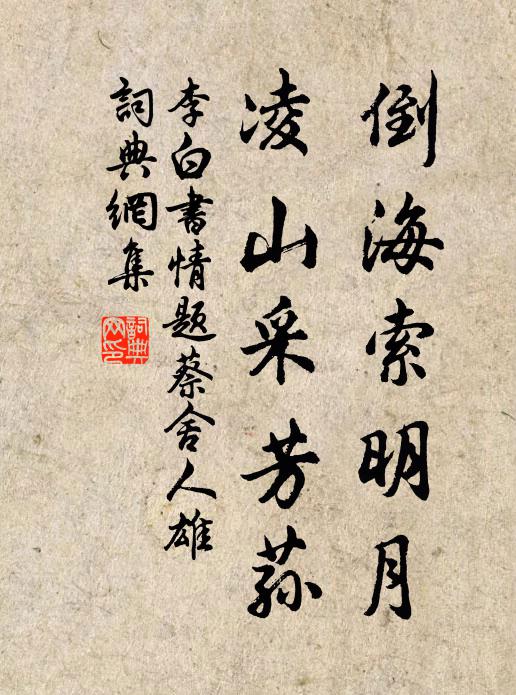 倒海索明月
凌山采芳蓀
李白書情題蔡舍人雄
詞典網集
詞典网印